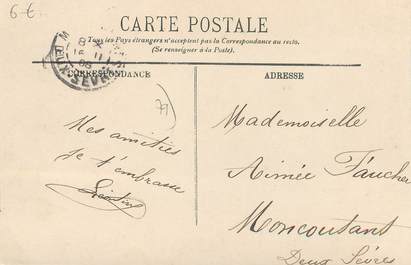 6 €
CARTE POSTALE
Tous les Pays étrangers n'acceptent pas la Correspondance au recto.
(Se renseigner à la Poste).
CORRESPONDANCE
ADRESSE
79
Mes amitiés
Je t'embrasse
Mademoiselle
Aimée Faucher
Moncoutant
Deux Sèvres